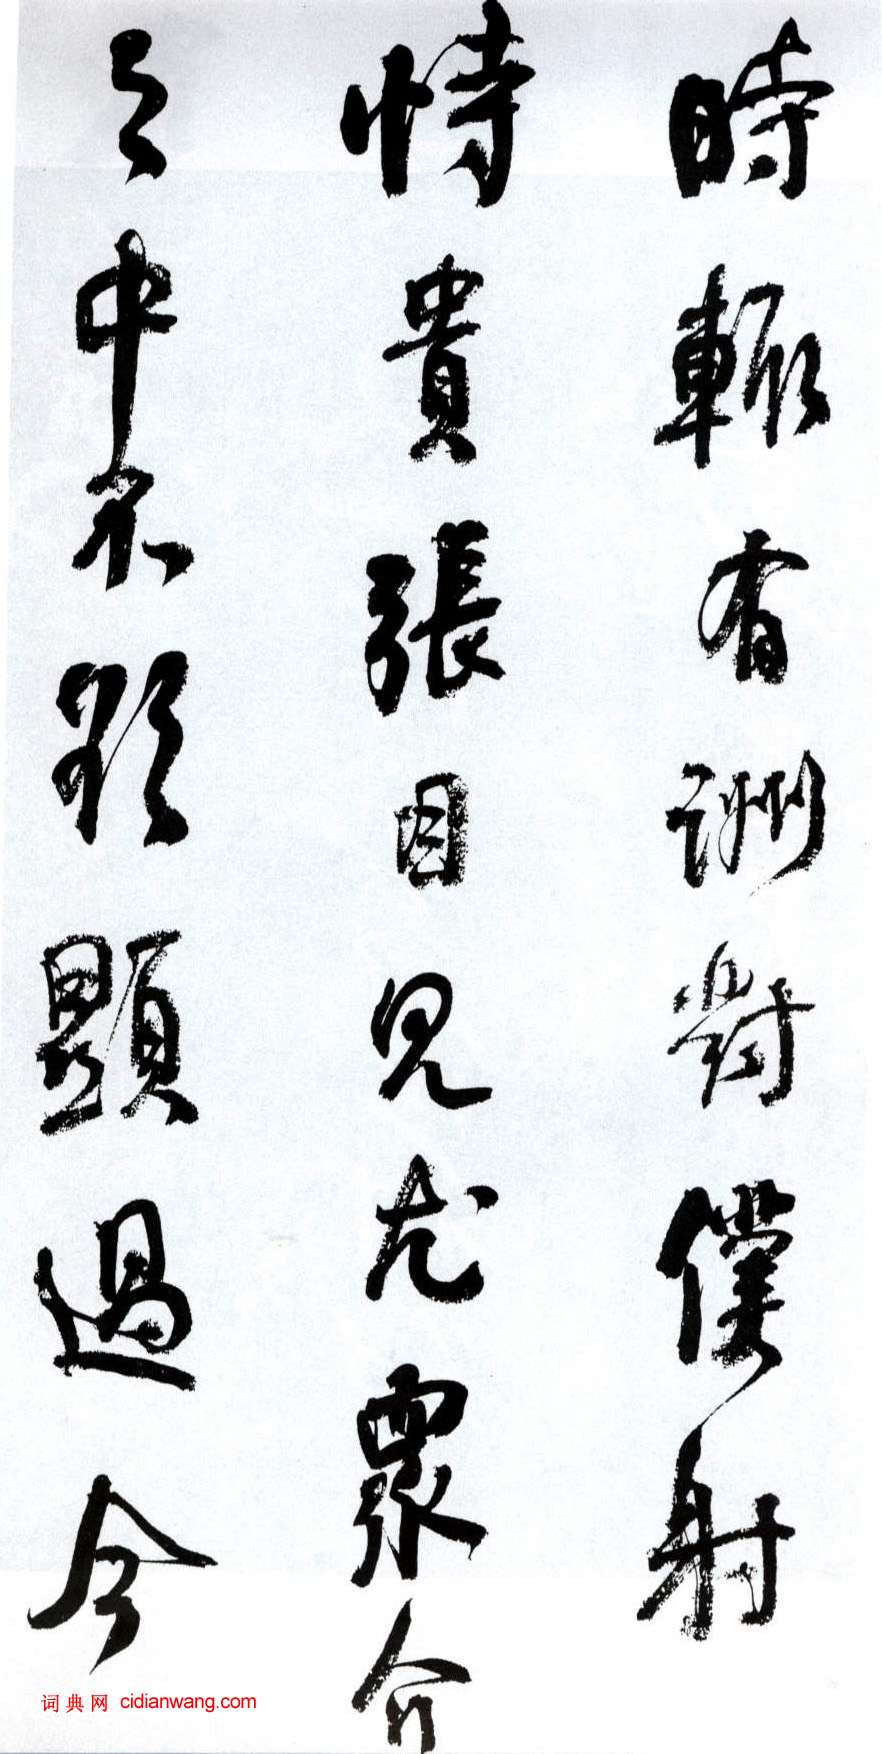 時輒有詶對僕射
恃貴張目見尤衆介
之中不欲顯過今
词典网 cidianwang.com